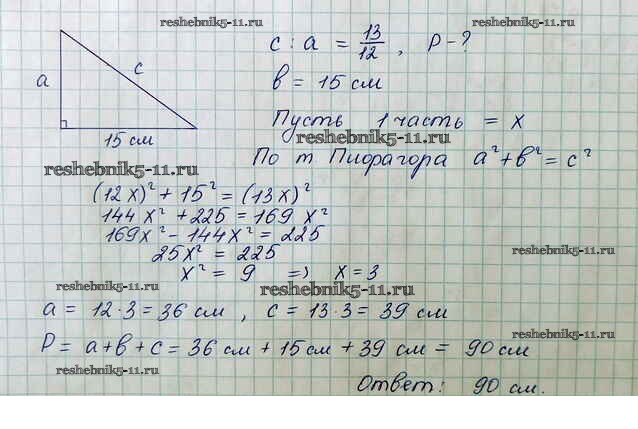 reshebnik5-11.ru
reshebnik5-11.ru
c : a = 13/12 , P - ?
a
c
в = 15 см
15 см
Пусть 1 часть = x
reshebnik5-11.ru
reshebnik5-11.ru
По т Пифагора a² + в² = c²
(12x)² + 15² = (13x)²
144 x² + 225 = 169 x²
169x² - 144x² = 225
25x² = 225
reshebnik5-11.ru
x² = 9 => x = 3
reshebnik5-11.ru
reshebnik5-11.ru
a = 12·3 = 36 см , c = 13·3 = 39 см
reshebnik5-11.ru
P = a + в + c = 36 см + 15 см + 39 см = 90 см
reshebnik5-11.ru
Ответ: 90 см.